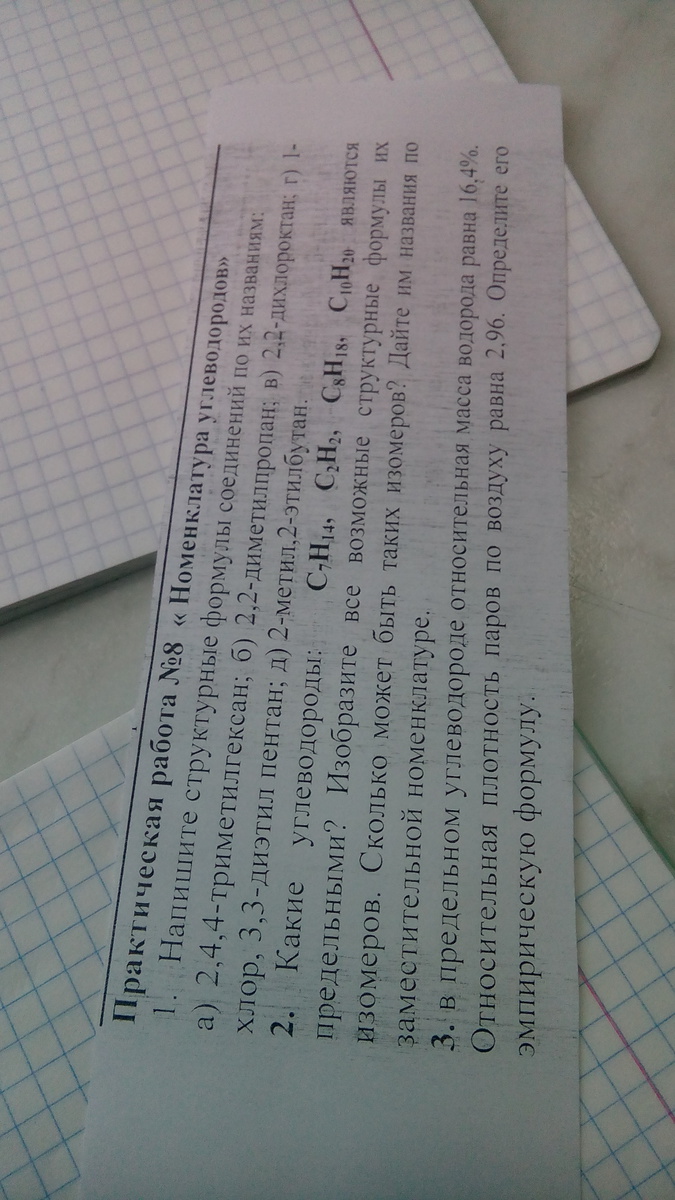 Практическая работа №8 « Номенклатура углеводородов»
1. Напишите структурные формулы соединений по их названиям:
а) 2,4,4-триметилгексан; б) 2,2-диметилпропан; в) 2,2-дихлороктан; г) 1-
хлор, 3,3-диэтил пентан; д) 2-метил,2-этилбутан.
2. Какие углеводороды: C₇H₁₄, C₂H₂, C₈H₁₈, C₁₀H₂₀ являются
предельными? Изобразите все возможные структурные формулы их
изомеров. Сколько может быть таких изомеров? Дайте им названия по
заместительной номенклатуре.
3. в предельном углеводороде относительная масса водорода равна 16,4%.
Относительная плотность паров по воздуху равна 2,96. Определите его
эмпирическую формулу.